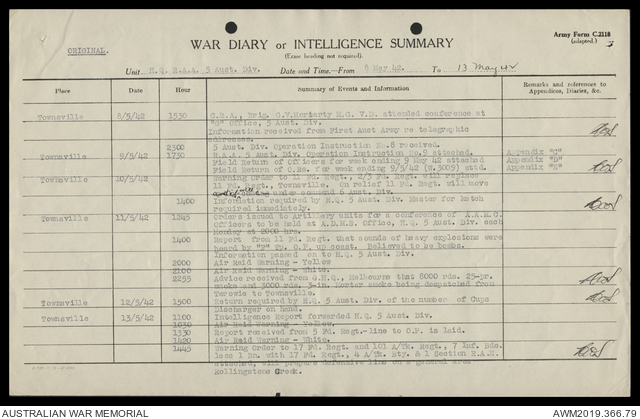 ORIGINAL.
WAR DIARY or INTELLIGENCE SUMMARY
(Erase heading not required).
Army Form C.2118
(adapted.)
Unit H.Q. R.A.A. 5 Aust. Div. Date and Time.—From 8 May 42. To 13 May 42
Place Date Hour Summary of Events and Information Remarks and references to Appendices, Diaries, &c.
Townsville 8/5/42 1530 C.R.A., Brig. C.V. Moriarty M.C. V.D. attended conference at
"G" Office, 5 Aust. Div.
Information received from First Aust Army re telegraphic
addresses.
2300 5 Aust. Div. Operation Instruction No.8 received.
Townsville 9/5/42 1730 R.A.A. 5 Aust. Div. Operation Instruction No.9 attached. Appendix "C"
Field Return of Officers for week ending 9 May 42 attached Appendix "D"
Field Return of O.Rs. for week ending 9/5/42 (W.3009) attd. Appendix "E"
Townsville 10/5/42 Warning Order to 11 Fd. Regt., 2/3 Fd. Regt.
11 Fd. Regt., Townsville. On relief 11 Fd. Regt. will move
under command 5 Aust Div.
1400 Information required by H.Q. 5 Aust. Div.
required immediately.
Townsville 11/5/42 1245 Orders issued to Artillery units for a conference of
Officers to be held at A.D.M.S. Office, H.Q. 5 Aust. Div. each
Monday at 2000 hrs.
1400 Report from 11 Fd. Regt. that sounds of heavy explosions were
heard by O.P. up coast. Believed to be bombs.
Information passed on to H.Q. 5 Aust. Div.
2000 Air Raid Warning - Yellow
2100 Air Raid Warning - White.
2255 Advice received from G.H.Q., Melbourne that 8000 rds. 25-pr.
smoke and 3000 rds. 3-in. Mortar smoke being despatched from
Terowie to Townsville.
Townsville 12/5/42 1500 Return required by H.Q. 5 Aust. Div. of the number of Cups
Discharger on hand.
Townsville 13/5/42 1100 Intelligence Report forwarded H.Q. 5 Aust. Div.
1030 Air Raid Warning - Yellow.
1330 Report received from 5 Fd. Regt.-line to O.P. is laid.
1420 Air Raid Warning - White.
1445 Warning Order to 17 Fd. Regt. and 101 A/Tk. Regt., 7 Inf. Bde.
less 1 Bn. with 17 Fd. Regt., 4 A/Tk. Bty. & 1 Section R.A.E.
attached, will prepare defensive line on a general area
Rollingstone Creek.
AUSTRALIAN WAR MEMORIAL AWM2019.366.79